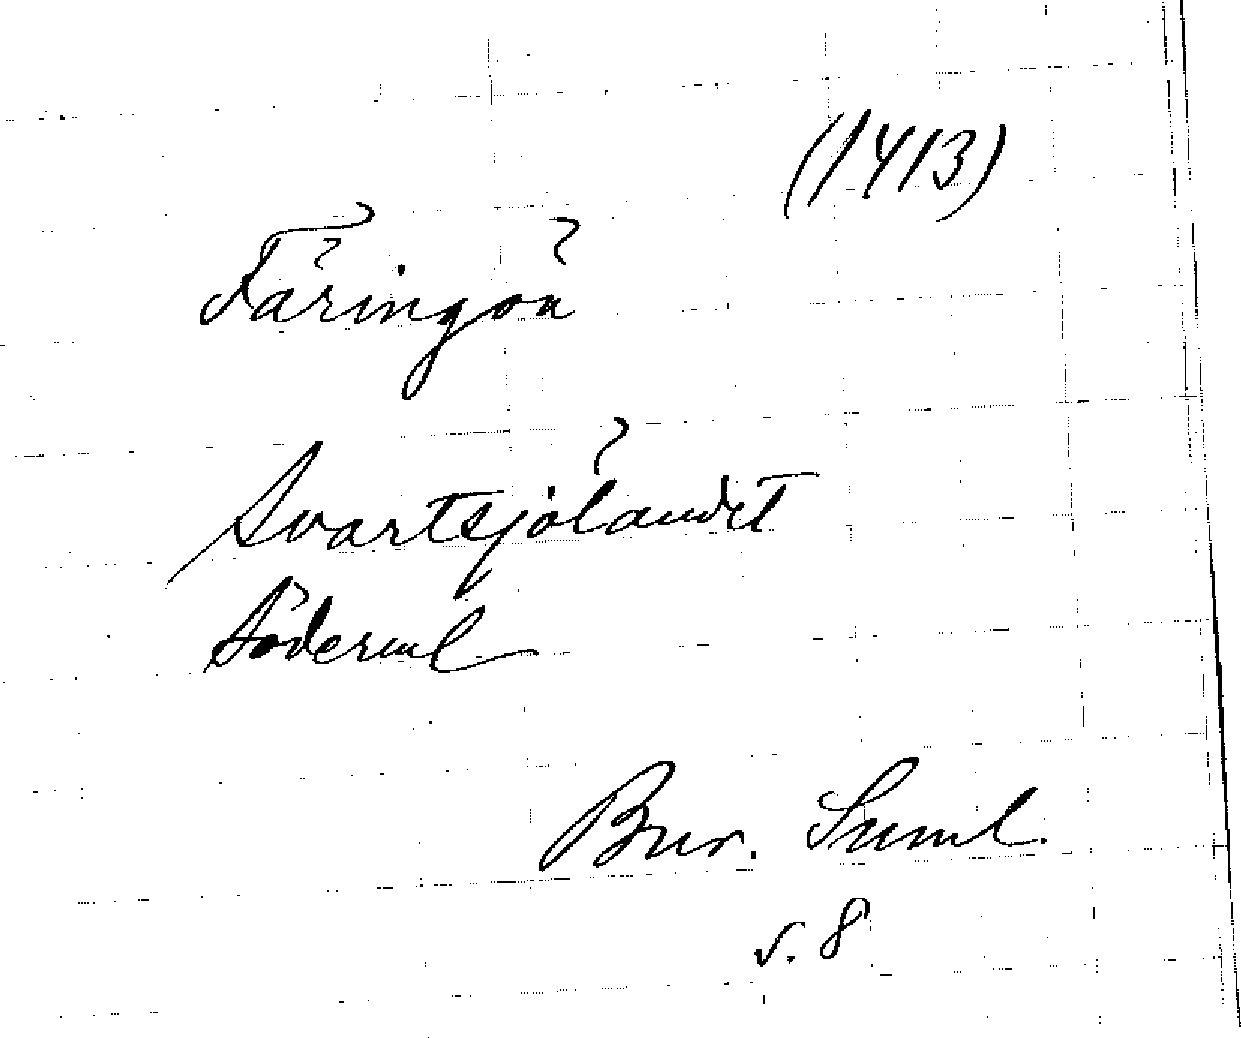 (1413)
Färingön
Svartsjölandet
Söderml
Bur. Saml.
s. 8